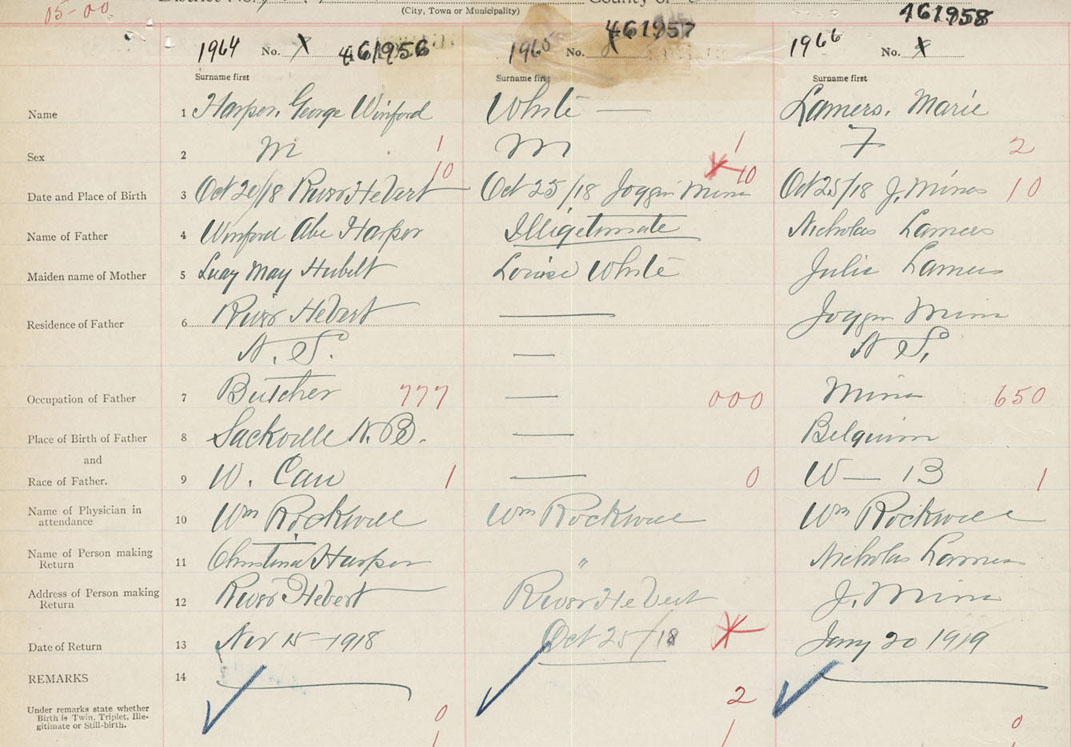 05-00
(City, Town or Municipality) County of
461956 461957 461958
1964 No. 1965 No. 1966 No.
Surname first Surname first Surname first
Name 1 Harper, George Winford White — Lamers, Marie
Sex 2 M 1 M 1 F 2
Date and Place of Birth 3 Oct 20/18 River Hebert 10 Oct 25/18 Joggin Mines 10 Oct 25/18 J. Mines 10
Name of Father 4 Winford Abe Harper Illigetimate Nicholas Lamers
Maiden name of Mother 5 Lucy May Louise White Julie Lamers
Residence of Father 6 River Hebert — Joggin Mines
N. S. — N S.
Occupation of Father 7 Butcher 777 — 000 650
Place of Birth of Father 8 Sackville N. B. — Belguim
and
Race of Father. 9 W. Can 1 — 0 W — B 1
Name of Physician in
attendance 10 Wm Rockwell Wm Rockwell Wm Rockwell
Name of Person making
Return 11 Christina Harper " Nicholas Lamers
Address of Person making
Return 12 River Hebert River Hebert J. Mines
Date of Return 13 Nov 15-1918 Oct 25/18 Jany 20 1919
REMARKS 14
Under remarks state whether
Birth is Twin, Triplet, Ille-
gitimate or Still-birth.
0 2 0
1 1 1